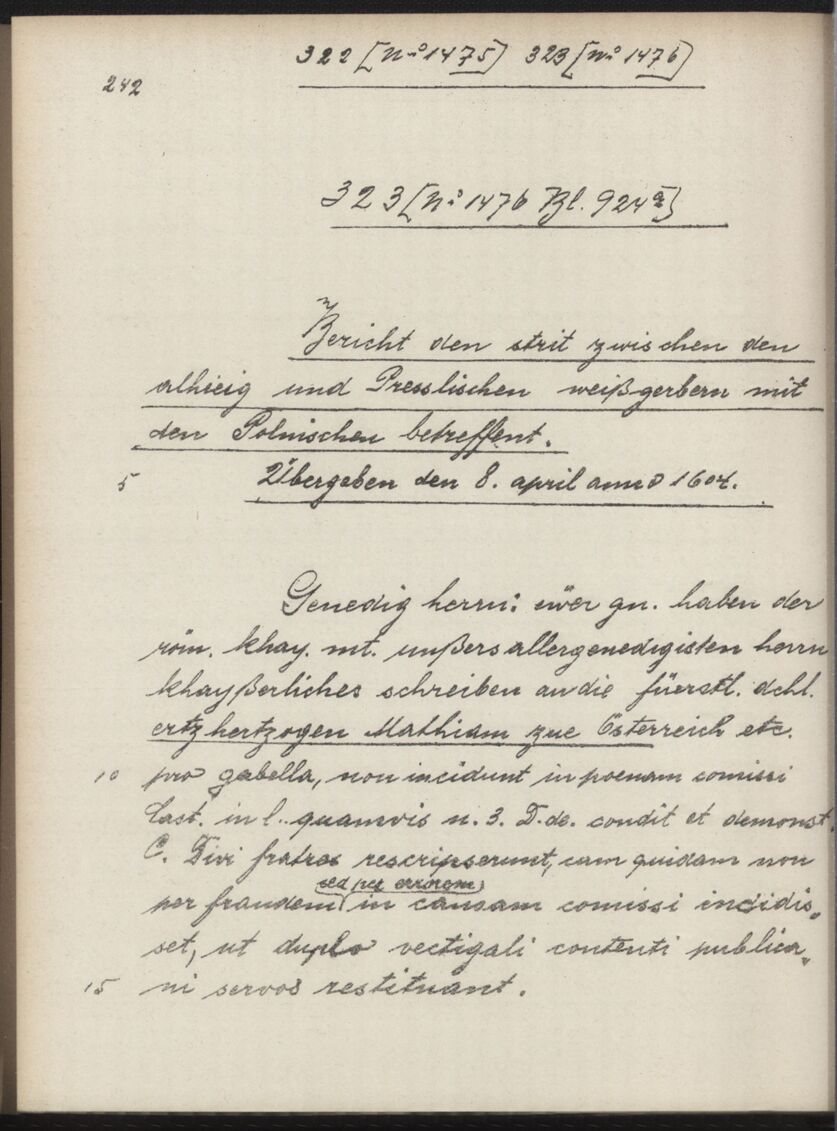 322 [No 1475] 323 [No 1476]
242
323 [No 1476 Bl. 924a]
Bericht den strit zwischen den
alhieig und Presslischen weißgerbern mit
den Polnischen betreffent.
5 Übergeben den 8. april anno 1604.
Genedig herrn: ewer gn. haben der
röm. khay. mt. unßers allergenedigisten herrn
khayßerliches schreiben an die füerstl. dchl.
ertzhertzogen Mathiam zue Österreich etc.
10 pro gabella, non incidunt in poenam comissi
Cast. in l. quamvis n. 3. D. de. condit et demonst.
C. Divi fratres rescripserunt, cum quidam non
per fraudem (sed per errorem) in causam comissi incidis„
set, ut duplo vectigali contenti publica„
15 ni servos restituant.